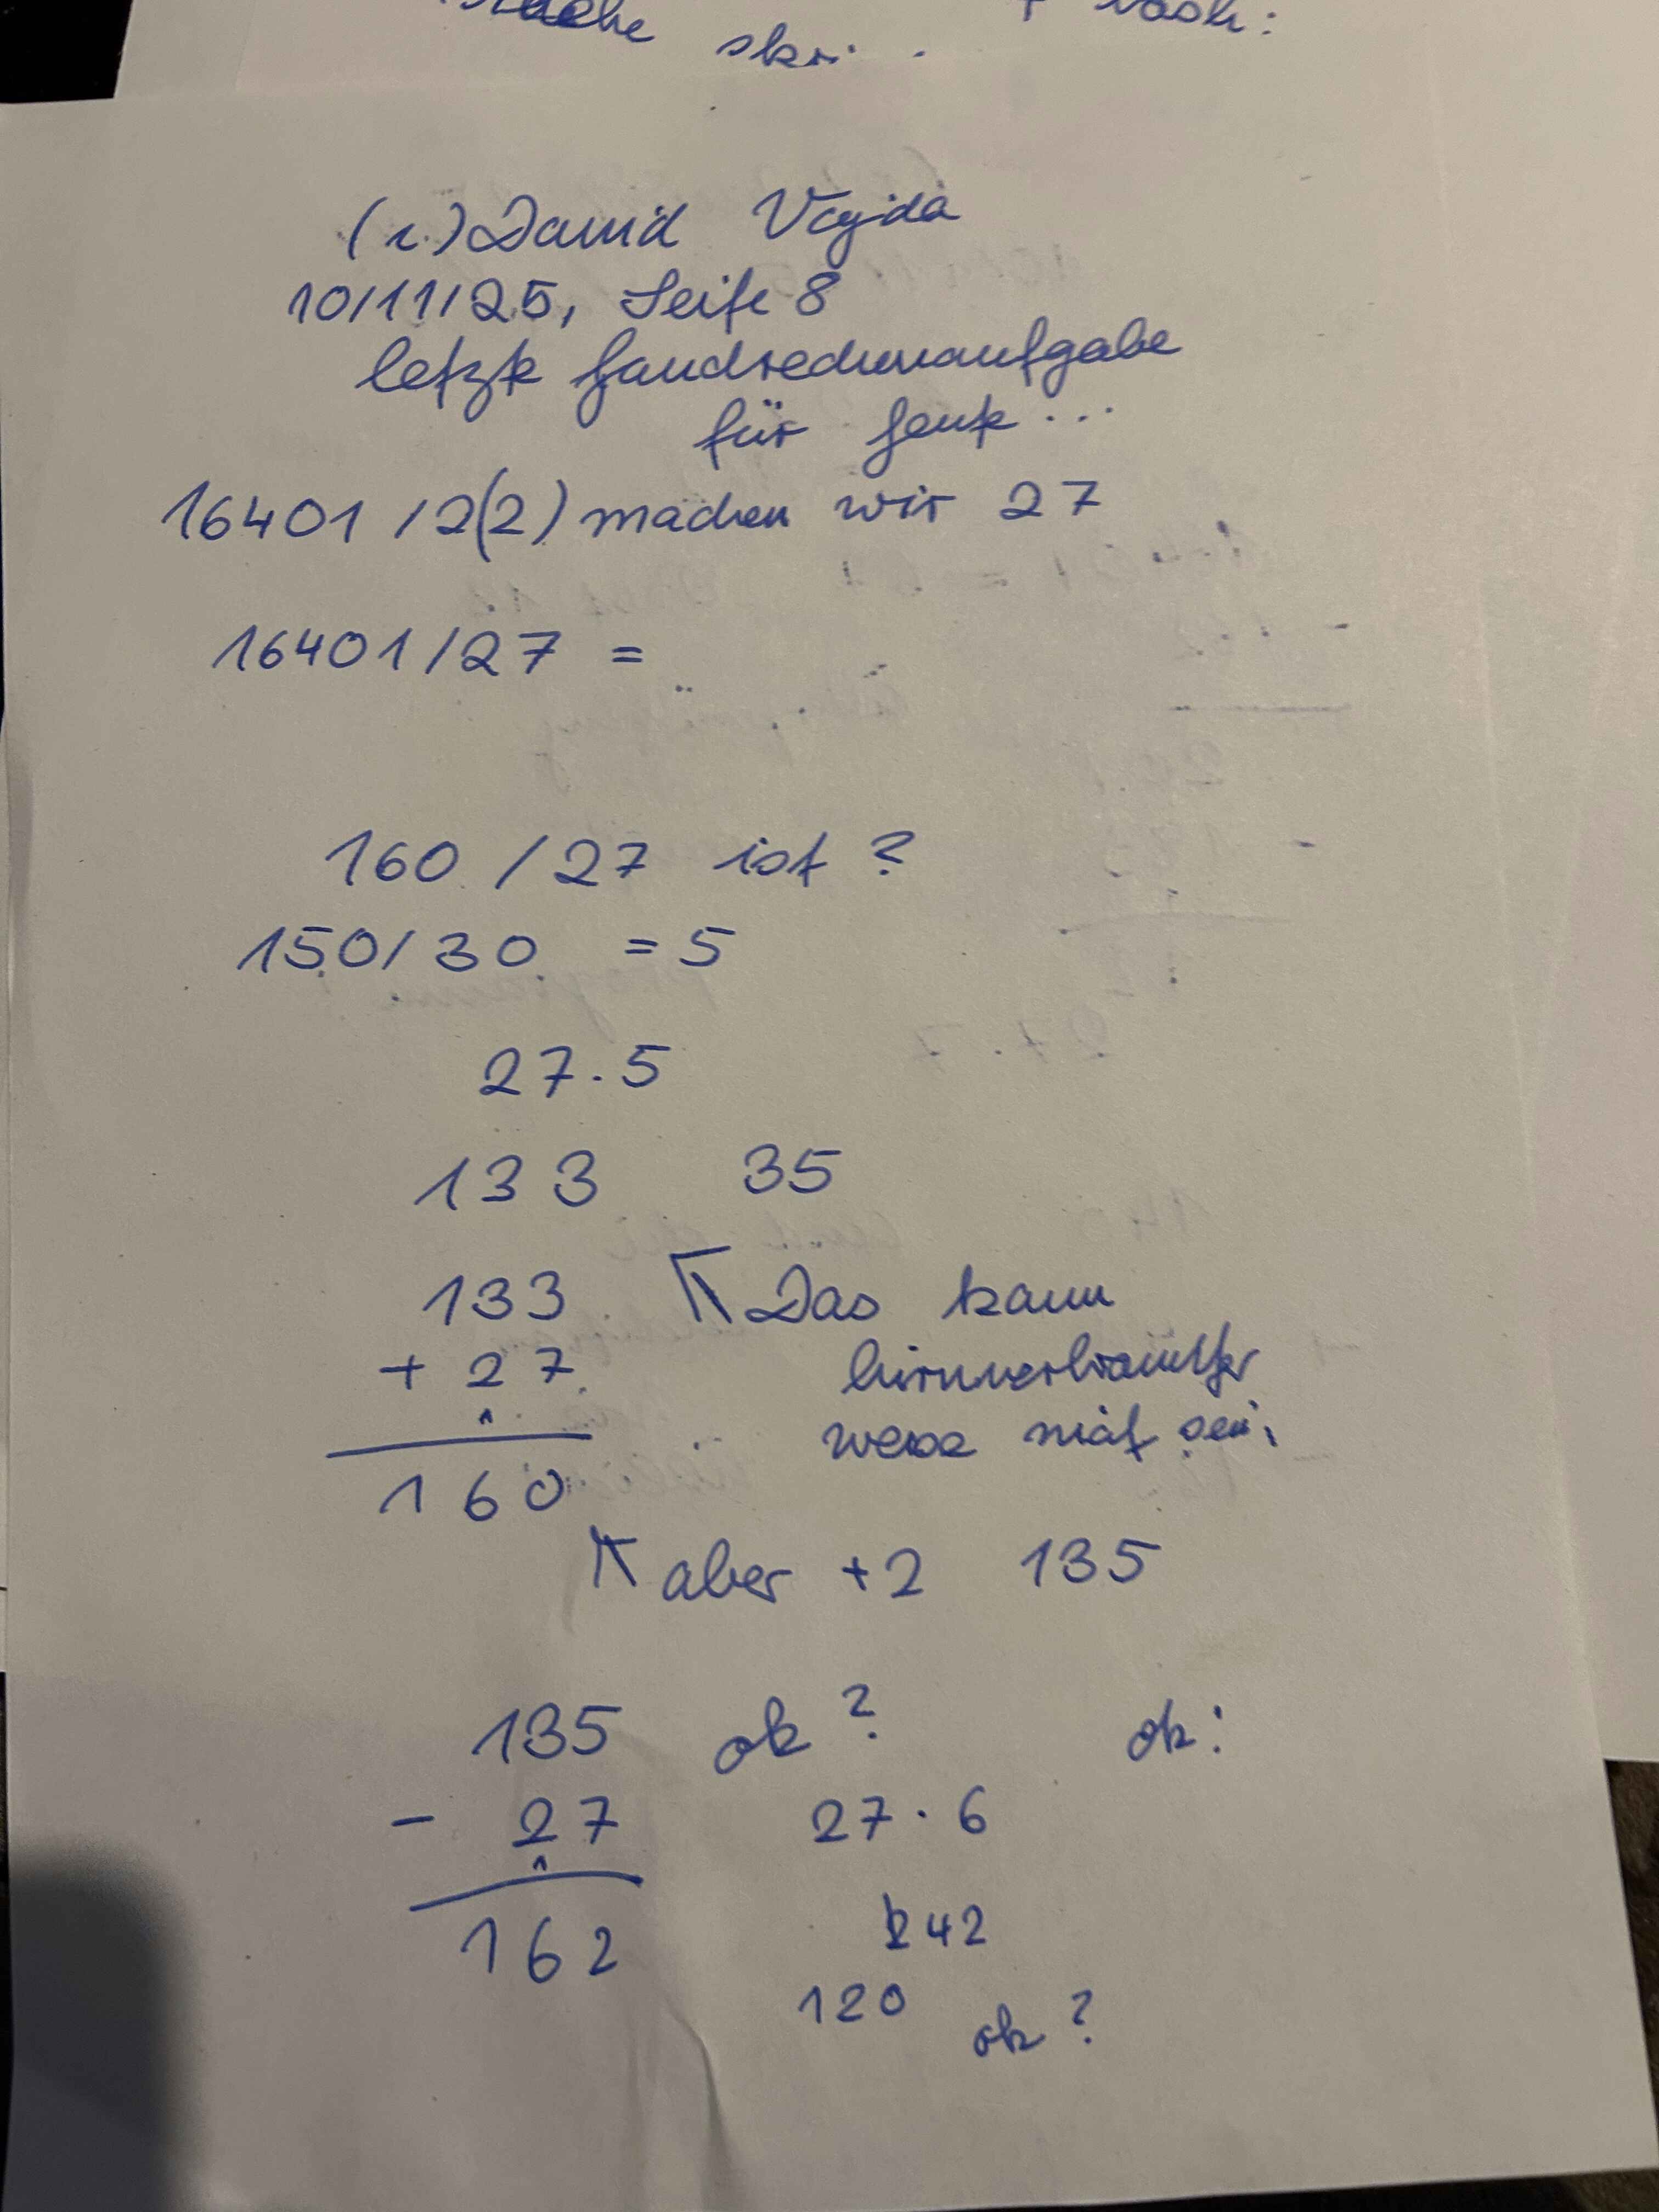 skr
(c) David Vajda
10/11/25, Seite 8
letzte Handrechenaufgabe
für heute ...
16401 / 2(2) machen wir 27
16401 / 27 =
160 / 27 ist ?
150 / 30 = 5
27 . 5
133 35
133 Das kann
+ 27 hirnverbrannter
160 nicht sein,
aber +2 135
135 ok ? ok:
- 27 27 . 6
162 42
120 ok ?